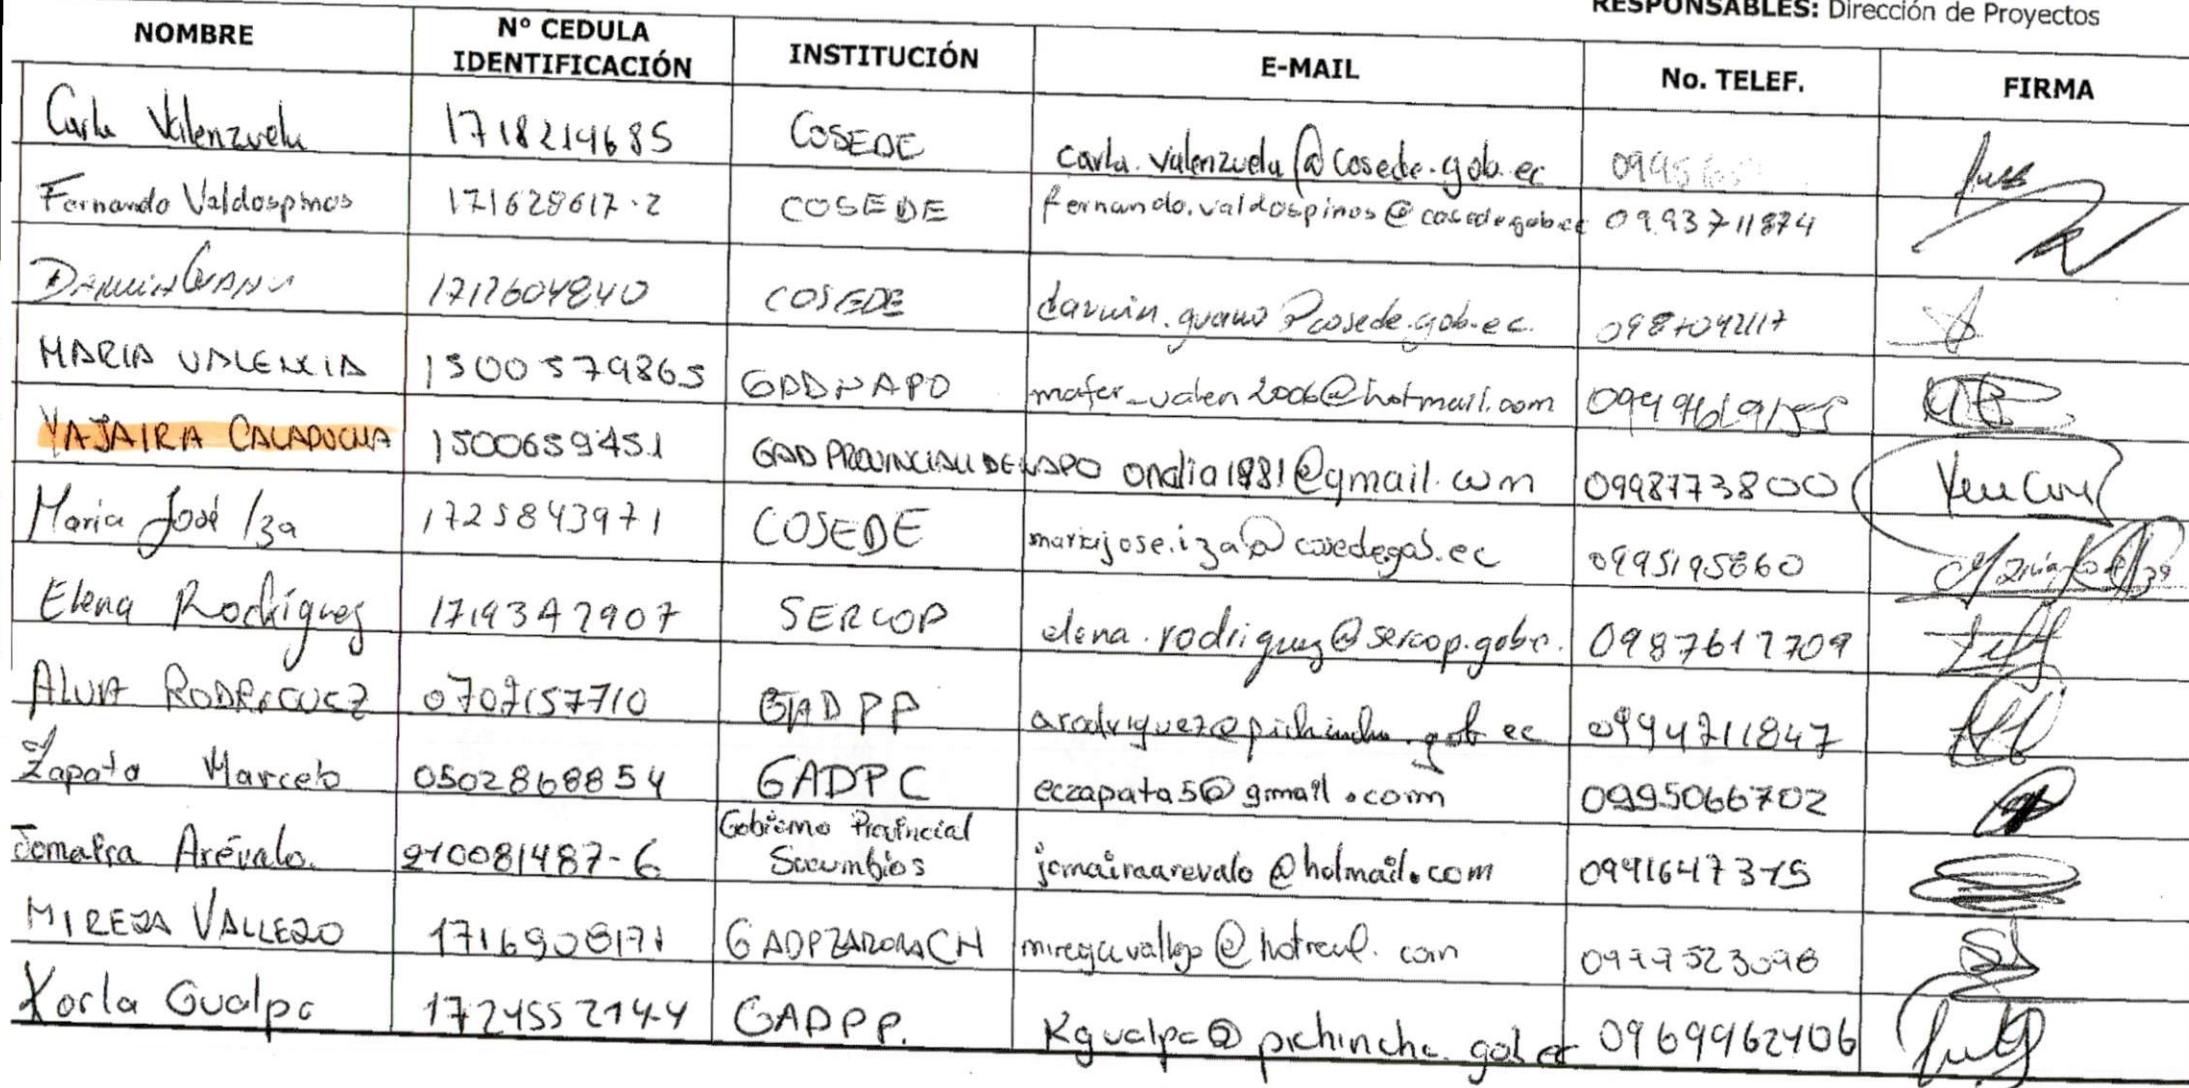 RESPONSABLES: Dirección de Proyectos
NOMBRE Nº CEDULA IDENTIFICACIÓN INSTITUCIÓN E-MAIL No. TELEF. FIRMA
Carla Valenzuela 1718214685 COSEDE carla.valenzuela@cosede.gob.ec
Fernando Valdospinos 171628617-2 COSEDE fernando.valdospinos@cosede.gob.ec 0993711874
Darwin Guano 1712604840 COSEDE darwin.guano@cosede.gob.ec.
MARIA VALENCIA 1500579865 GADNAPO mafer_valen2006@hotmail.com
YAJAIRA CALAPUCHA 1500659451 GAD PROVINCIAL DE NAPO ondia1981@gmail.com 0998773800
Maria José Iza 1725843971 COSEDE mariajose.iza@cosede.gob.ec 0995195860
Elena Rodríguez SERCOP elena.rodriguez@sercop.gob. 0987617709
ALVA RODRIGUEZ GADPP arodriguez@pichincha.gob.ec 0994711847
Zapata Marcelo 0502868854 GADPC eczapata5@gmail.com 0995066702
Jomaira Arévalo. 210081487-6 Gobierno Provincial Sucumbios jomairaarevalo@hotmail.com
MIREYA VALLEJO GADPZAMORACH
Karla Gualpa GADPP. Kgualpa@pichincha.gob.ec 0969962406